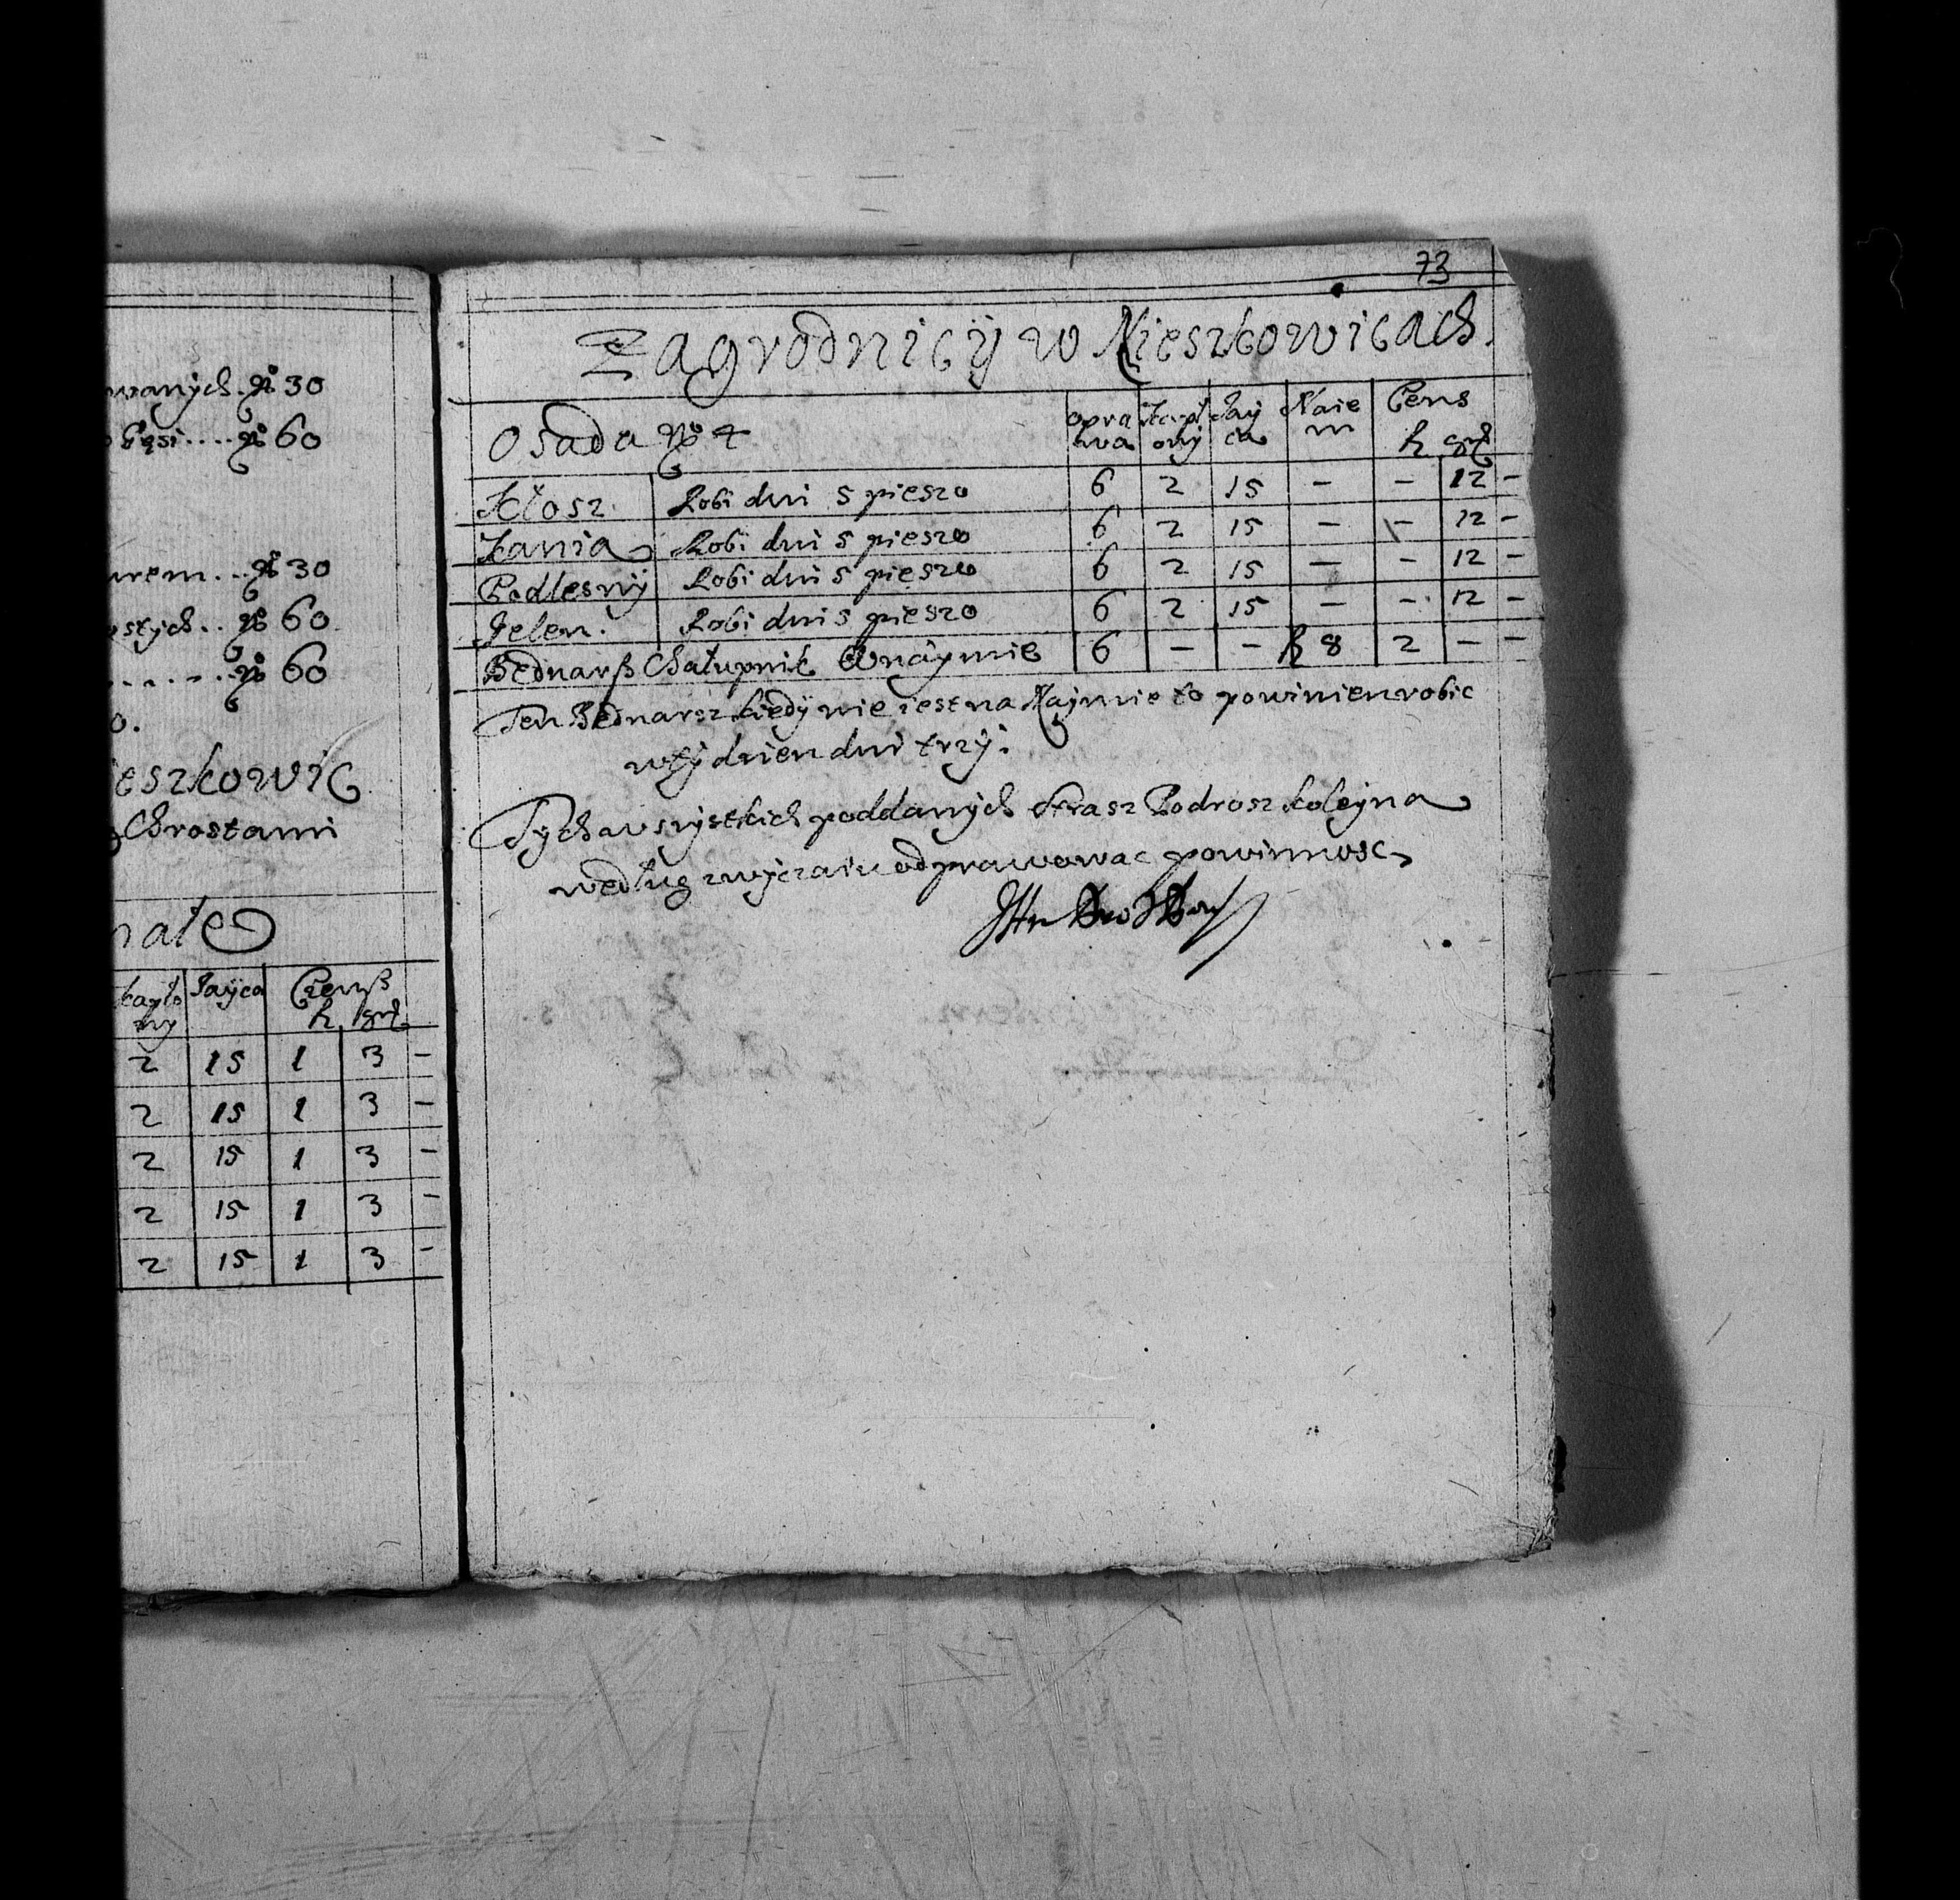 wanych. No 30
Gęsi .... No 60
urem... No 30
estych.. No 60
....... No 60
0.
ieszkowic
Chrostami
nate
kapło Jayca Czenß
ny h gr
2 15 1 3 -
2 15 1 3 -
2 15 1 3 -
2 15 1 3 -
2 15 1 3 -
73
Zagrodnicÿ w Nieszkowicach.
Osada No 4
opra wa Kapł ony Jaÿ ca Naie m Cens h gr
Kłosz. Robi dni 5 pieszo 6 2 15 - - 12 -
Kania Robi dni 5 pieszo 6 2 15 - - 12 -
Podlesnÿ Robi dni 5 pieszo 6 2 15 - - 12 -
Jelen. Robi dni 5 pieszo 6 2 15 - - 12 -
Bednarß Chałupnik Wnaÿmie 6 - - 8 2 - -
Ten Bednarsz kiedÿ nie iest na Naÿmie to powinien robic
w tÿdzien dni trzÿ.
Tÿch wszÿstkich poddanÿch Strasz Podrosz koleÿna
według zwÿczaiu odprawowac powinnosc